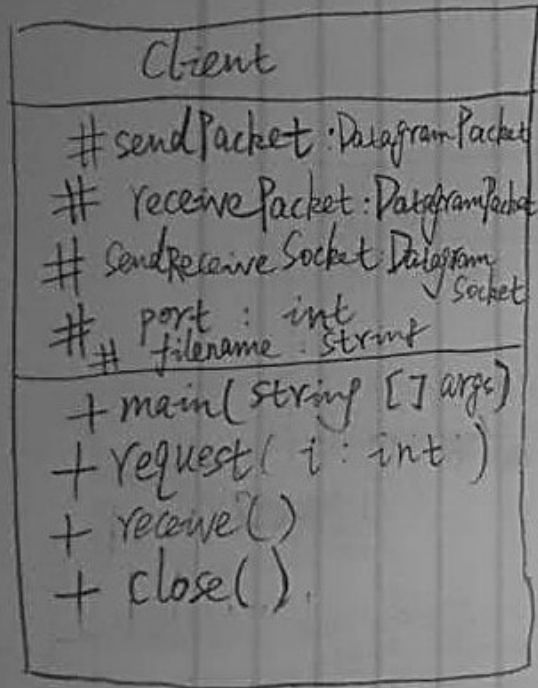 Client
# sendPacket : DatagramPacket
# receivePacket : DatagramPacket
# SendReceive Socket : Datagram
Socket
# port : int
# filename : string
+ main( string [] args)
+ request( i : int )
+ receive()
+ close().